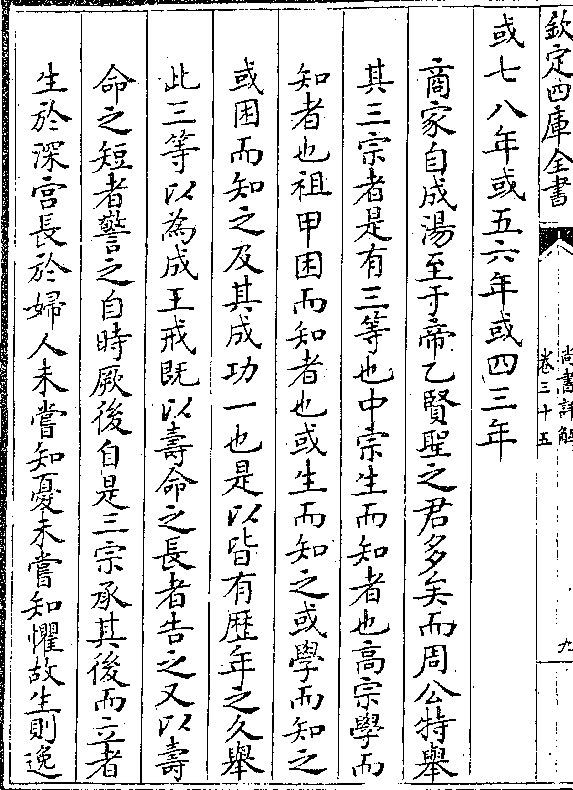 欽定四庫全書
尚書詳解
卷三十五
九
或七八年或五六年或四三年
商家自成湯至于帝乙賢聖之君多矣而周公特舉
其三宗者是有三等也中宗生而知者也高宗學而
知者也祖甲困而知者也或生而知之或學而知之
或困而知之及其成功一也是以皆有歴年之久舉
此三等以為成王戒既以壽命之長者告之又以壽
命之短者警之自時厥後自是三宗承其後而立者
生於深宫長於婦人未嘗知憂未嘗知懼故生則逸